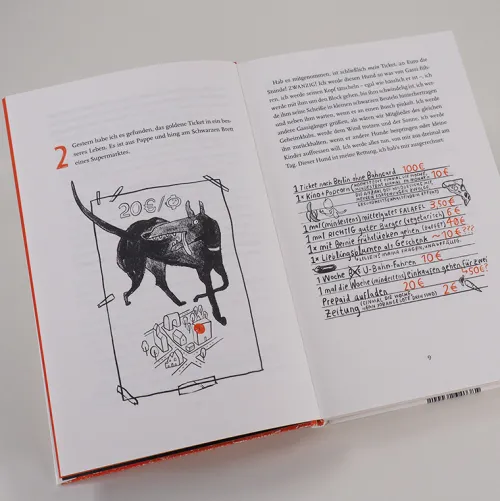 2
Gestern habe ich es gefunden, das goldene Ticket in ein bes-
seres Leben. Es ist aus Pappe und hing am Schwarzen Brett
eines Supermarktes.
20€/
Hab es mitgenommen, ist schließlich mein Ticket. 20 Euro die
Stunde! ZWANZIG! Ich werde diesen Hund so was von Gassi füh-
ren, ich werde seinen Kopf tätscheln – egal wie eklig er ist –, ich
werde mit ihm um den Block gehen, bis ihm schwindelig ist, ich
werde seine Scheiße in kleinen schwarzen Beuteln
und neben ihm warten, wenn es an einen Busch pinkelt. Ich werde
andere Gassigänger grüßen, als wären wir Mitglieder des gleichen
Geheimclubs, werde dem Wind trotzen und der Sonne, ich werde
ihn zurückhalten, wenn er andere Hunde bespringen oder kleine
Kinder auffressen will. Ich werde alles tun, von mir aus dreimal am
Tag. Dieser Hund ist meine Rettung, ich hab's nur ausgerechnet:
1 Ticket nach Berlin ohne Bahncard 100€
1x Kino+Popcorn 10€
1 mal (mindestens) mittelgutes FALAFEL 3,50€
1 mal RICHTIG guter Burger (vegetarisch) 6€
1x mit Bernie frühstücken gehen (Buffet) 40€
1x Lieblingsblumen als Geschenk ~10€???
1 Woche U-Bahn Fahren 10€
1 mal die Woche (mindestens) einkaufen gehen für zwei 450€!
Prepaid aufladen 20€
Zeitung 2€
9